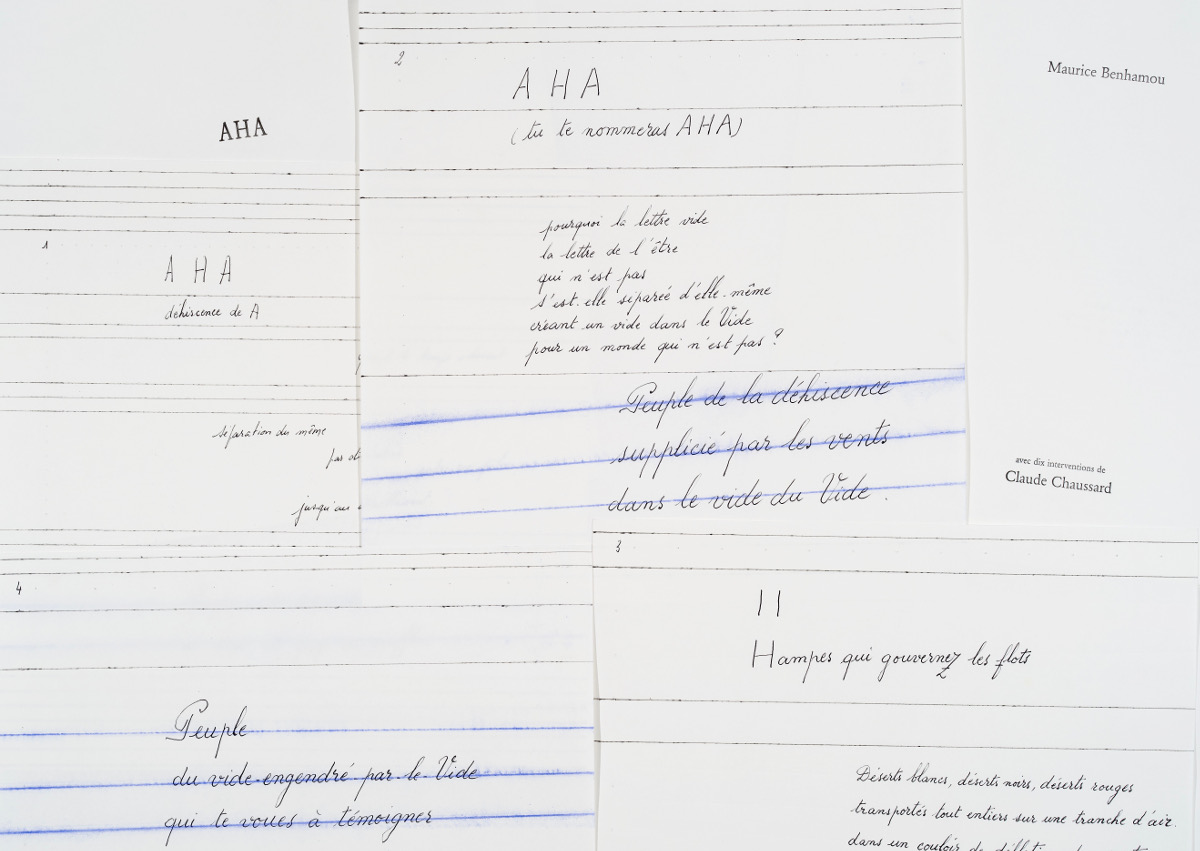 AHA
1
A H A
déhiscence de A
séparation du même
par
jusqu'au
2
A H A
(tu te nommeras AHA)
pourquoi la lettre vide
la lettre de l'être
qui n'est pas
s'est-elle séparée d'elle-même
créant un vide dans le Vide
pour un monde qui n'est pas ?
Peuple de la déhiscence
supplicié par les vents
dans le vide du Vide .
Maurice Benhamou
avec dix interventions de
Claude Chaussard
4
Peuple
du vide engendré par le Vide
qui te voues à témoigner
3
| |
Hampes qui gouvernez les flots
Déserts blancs, déserts noirs, déserts rouges
transportés tout entiers sur une tranche d'air.
dans un couloir de